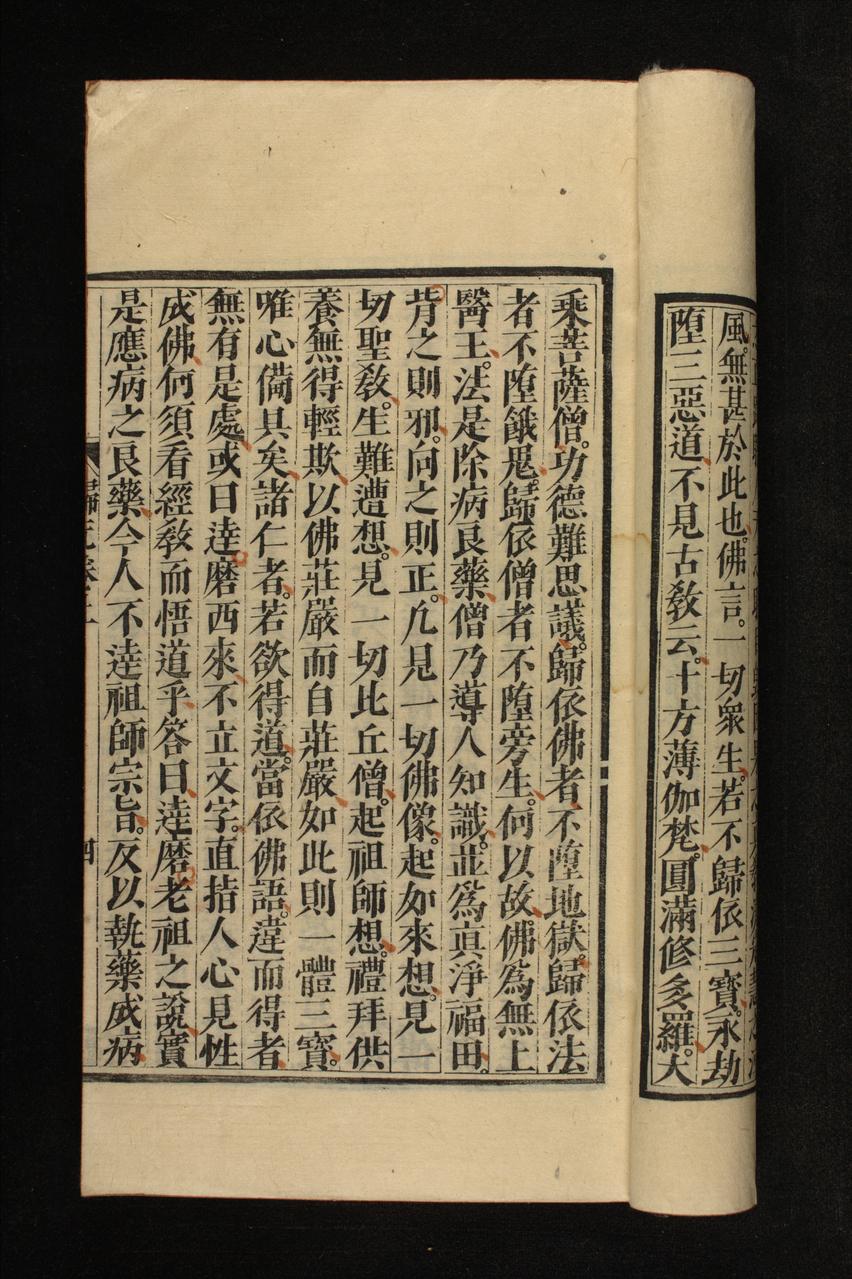 風。無甚於此也。佛言。一切衆生。若不歸依三寶。永劫
墮三惡道。不見古敎云。十方薄伽梵。圓滿修多羅。大
乘菩薩僧。功德難思議。歸依佛者。不墮地獄。歸依法
者。不墮餓鬼。歸依僧者。不墮旁生。何以故。佛爲無上
醫王。法是除病良藥。僧乃導人知識。並爲眞淨福田。
背之則邪。向之則正。凡見一切佛像。起如來想。見一
切聖敎。生難遭想。見一切比丘僧。起祖師想。禮拜供
養。無得輕欺。以佛莊嚴而自莊嚴。如此則一體三寶。
唯心備具矣。諸仁者。若欲得道。當依佛語。違而得者。
無有是處。或曰。達磨西來。不立文字。直指人心。見性
成佛。何須看經敎而悟道乎。答曰。達磨老祖之說。實
是應病之良藥。今人不達祖師宗旨。反以執藥成病。
四